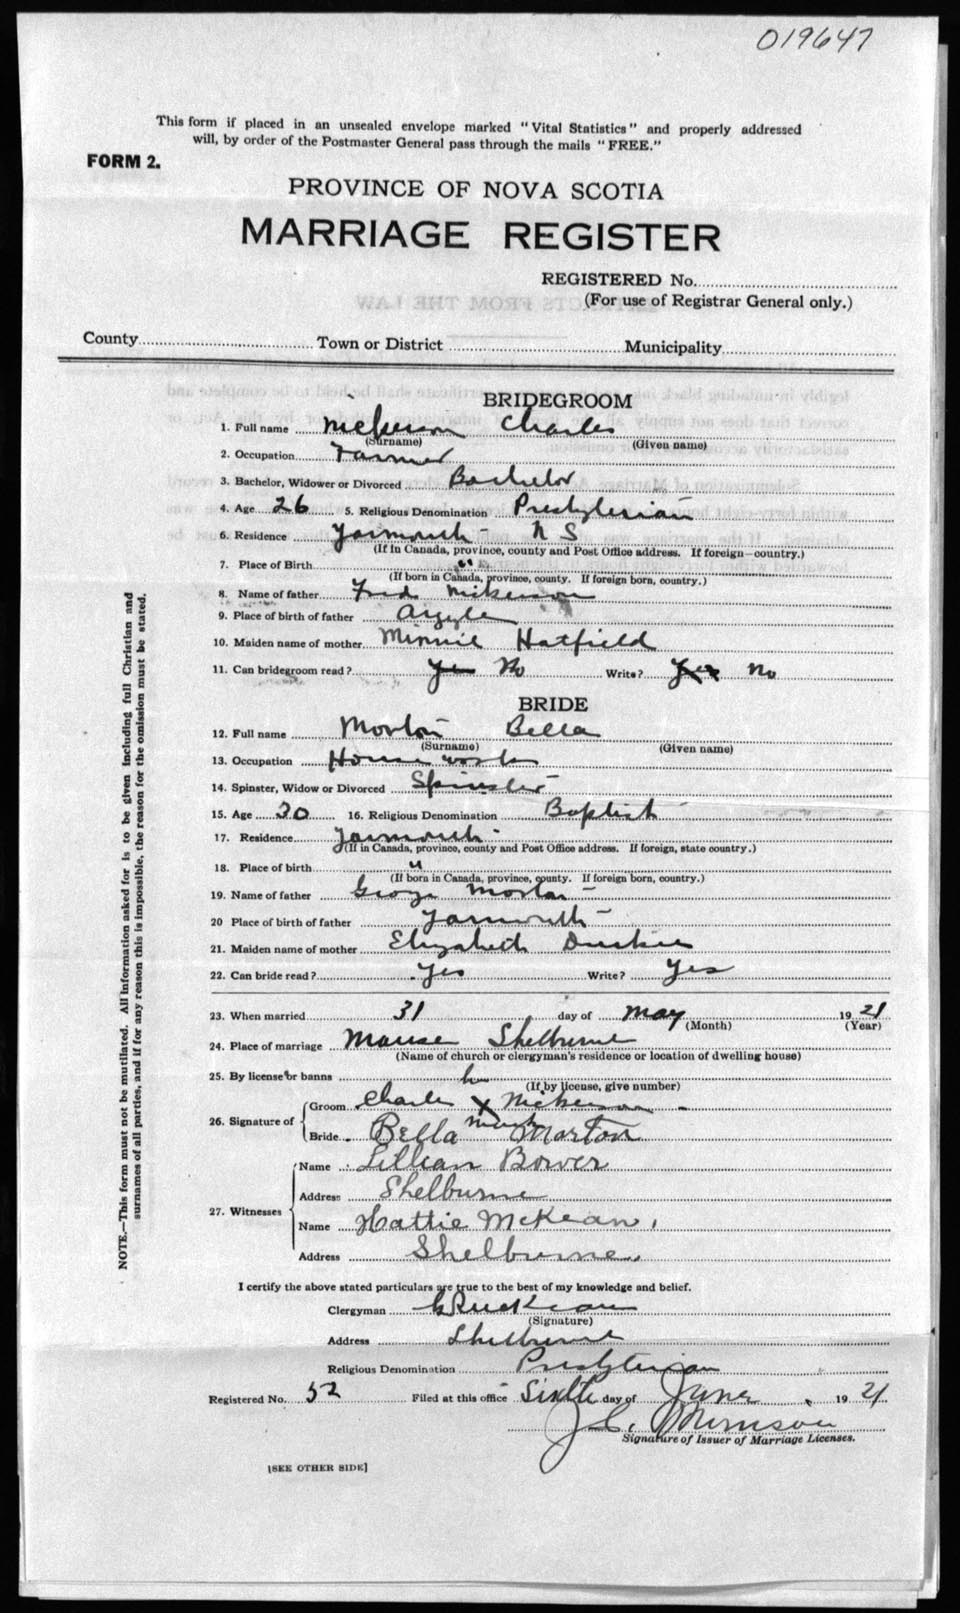 019647
This form if placed in an unsealed envelope marked "Vital Statistics" and properly addressed
will, by order of the Postmaster General pass through the mails "FREE."
FORM 2.
PROVINCE OF NOVA SCOTIA
MARRIAGE REGISTER
REGISTERED No.
(For use of Registrar General only.)
County Town or District Municipality
BRIDEGROOM
1. Full name Nickerson Charles
(Surname) (Given name)
2. Occupation Farmer
3. Bachelor, Widower or Divorced Bachelor
4. Age 26 5. Religious Denomination Presbyterian
6. Residence Yarmouth N S
(If in Canada, province, county and Post Office address. If foreign—country.)
7. Place of Birth "
(If born in Canada, province, county. If foreign born, country.)
8. Name of father Fred Nickerson
9. Place of birth of father Argyle
10. Maiden name of mother Minnie Hatfield
11. Can bridegroom read? Yes No Write? Yes No
BRIDE
12. Full name Morton Bella
(Surname) (Given name)
13. Occupation House work
14. Spinster, Widow or Divorced Spinster
15. Age 30 16. Religious Denomination Baptist
17. Residence Yarmouth
(If in Canada, province, county and Post Office address. If foreign, state country.)
18. Place of birth "
(If born in Canada, province, county. If foreign born, country.)
19. Name of father George Morton
20 Place of birth of father Yarmouth
21. Maiden name of mother Elizabeth
22. Can bride read? Yes Write? Yes
23. When married 31 day of May 1921
(Month) (Year)
24. Place of marriage Manse Shelburne
(Name of church or clergyman's residence or location of dwelling house)
25. By license or banns
(If by license, give number)
26. Signature of
Groom Charles X Nickerson
mark
Bride Bella Morton
27. Witnesses
Name Lillian Bower
Address Shelburne
Name Hattie McKean
Address Shelburne
I certify the above stated particulars are true to the best of my knowledge and belief.
Clergyman
(Signature)
Address Shelburne
Religious Denomination Presbyterian
Registered No. 52 Filed at this office Sixth day of June 1921
J. C. Morrison
Signature of Issuer of Marriage Licenses.
[SEE OTHER SIDE]
NOTE.—This form must not be mutilated. All information asked for is to be given including full Christian and
surnames of all parties, and if for any reason this is impossible, the reason for the omission must be stated.